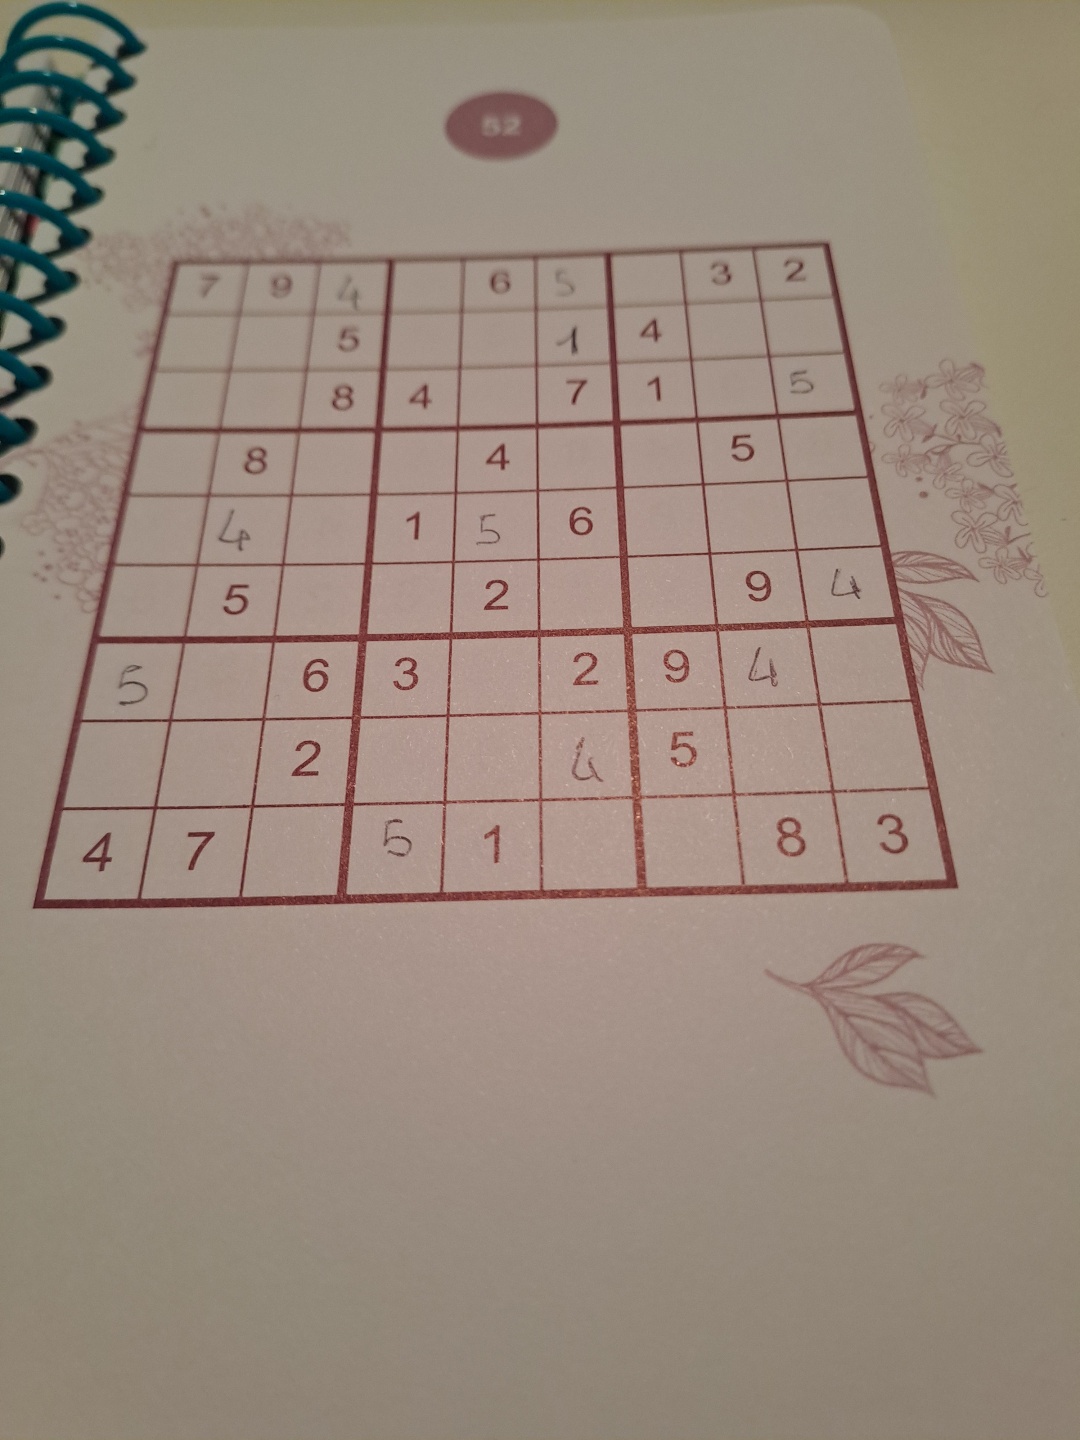 52
7 9 4 6 5 3 2
5 1 4
8 4 7 1 5
8 4 5
4 1 5 6
5 2 9 4
5 6 3 2 9 4
2 4 5
4 7 5 1 8 3